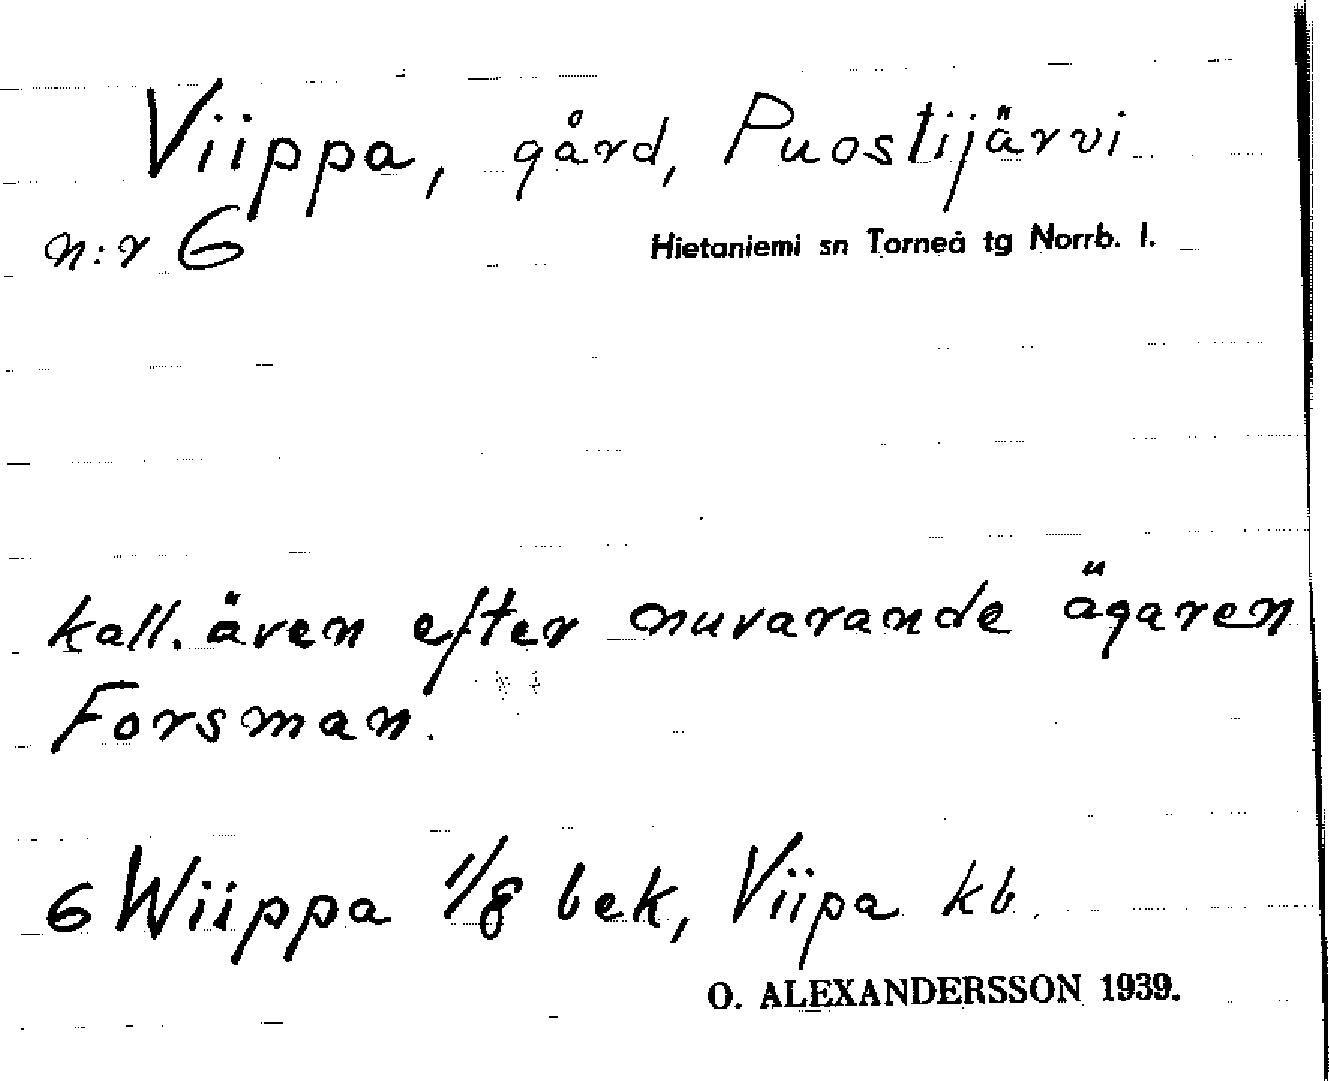 Viippa, gård, Puostijärvi
n:r 6
Hietaniemi sn Torneå tg Norrb. l.
kall. även efter nuvarande ägaren
Forsman.
6 Wiippa 1/8 bek, Viipa kb.
O. ALEXANDERSSON 1939.